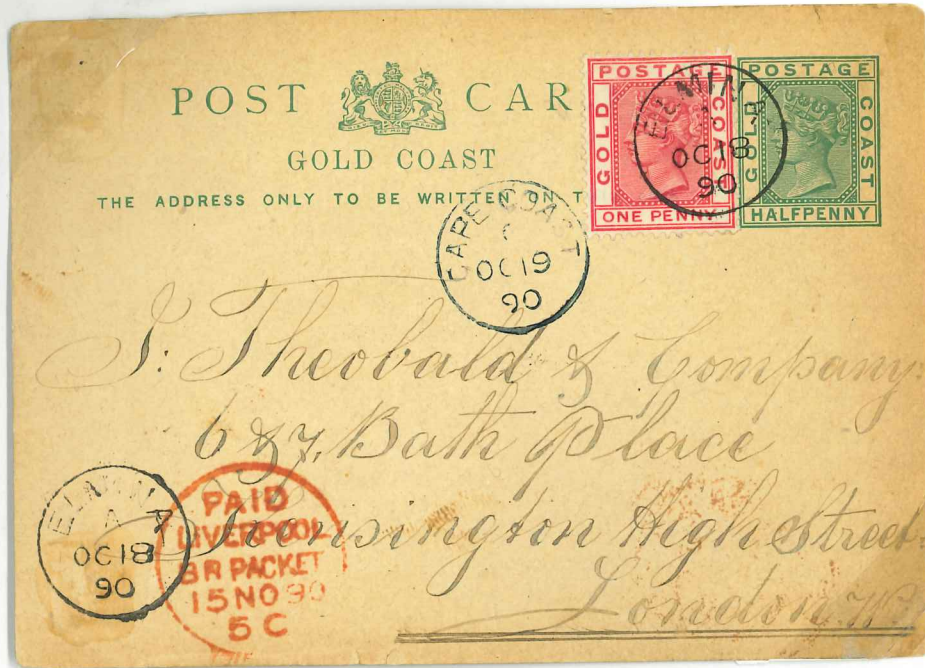 POST CAR
GOLD COAST
THE ADDRESS ONLY TO BE WRITTEN ON T
POSTAGE
GOLD COAST
ONE PENNY
POSTAGE
GOLD COAST
HALFPENNY
ELMINA
OC 18
90
CAPE COAST
C
OC 19
90
J. Theobald & Company
6 & 7, Bath Place
Kensington High Street
London, W.
ELMINA
A
OC 18
90
PAID
LIVERPOOL
BR PACKET
15 NO 90
5 C